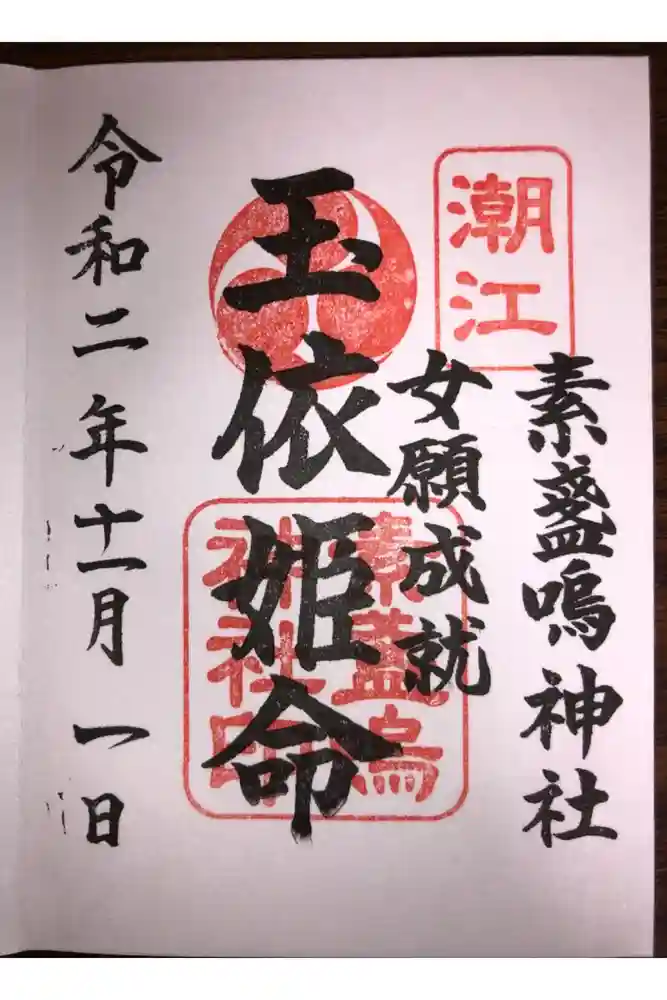 潮江
素盞嗚神社
女願成就
玉依姫命
素盞嗚
神社印
令和二年十一月一日